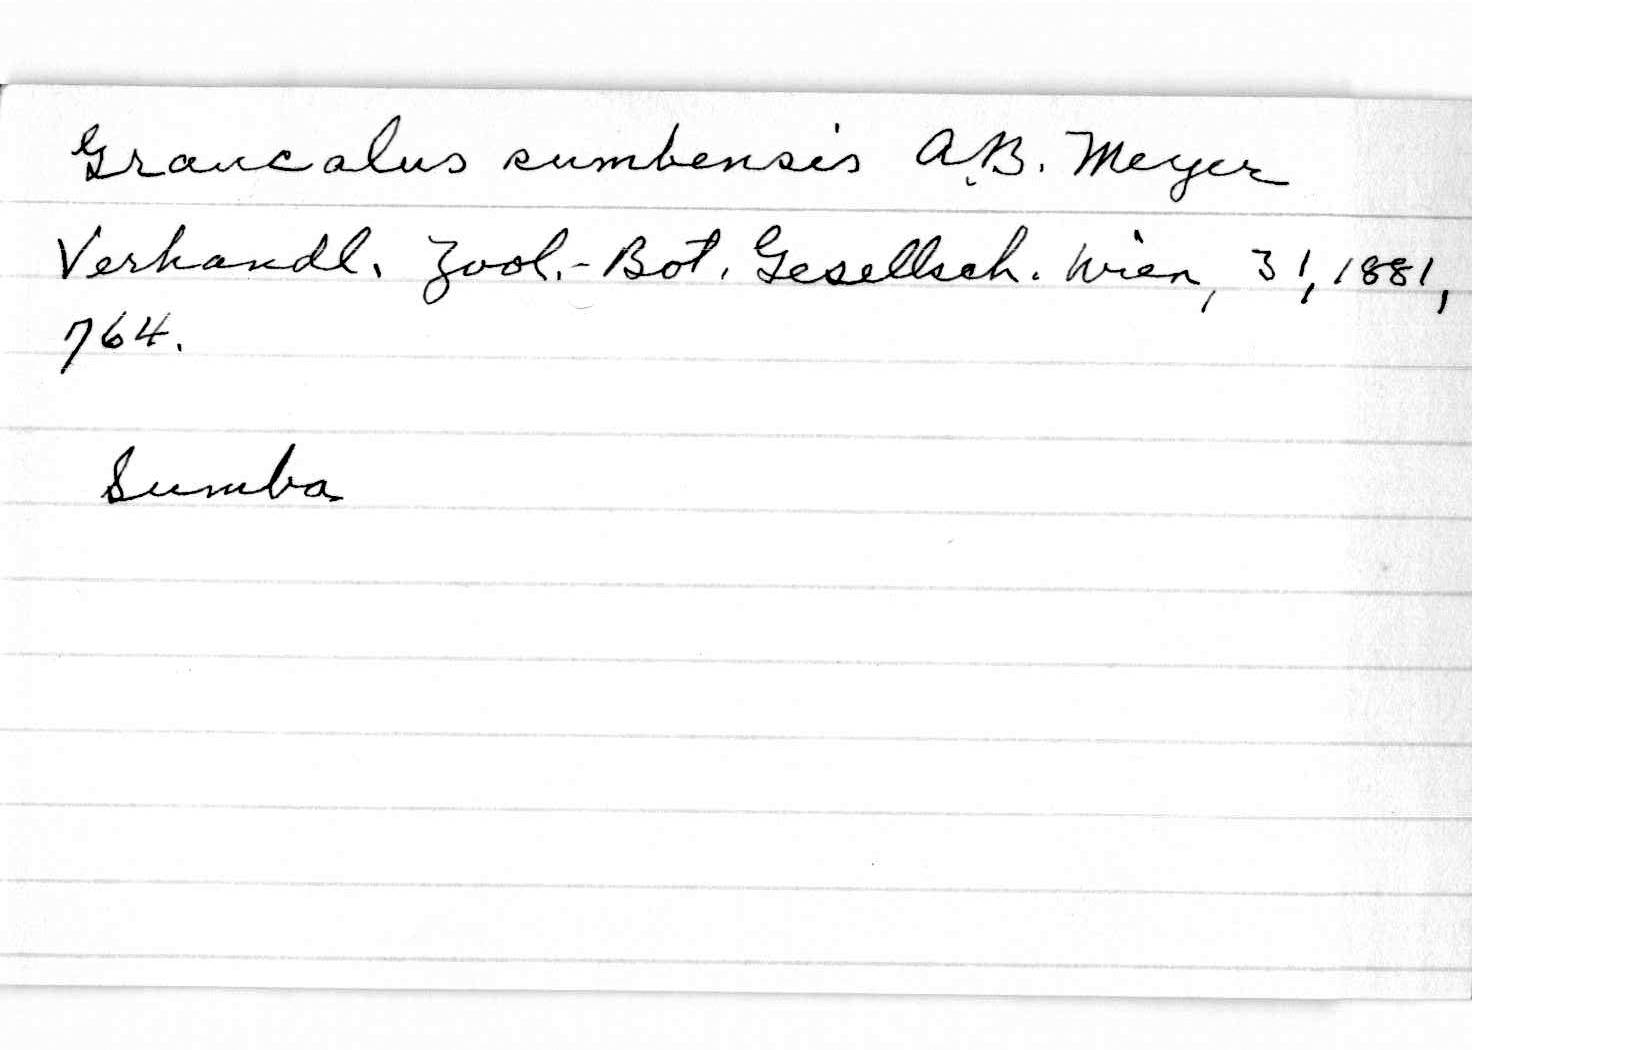 Graucalus sumbensis A.B. Meyer
Verhandl. Zool.-Bot. Gesellsch. Wien, 31, 1881,
764.
Sumba